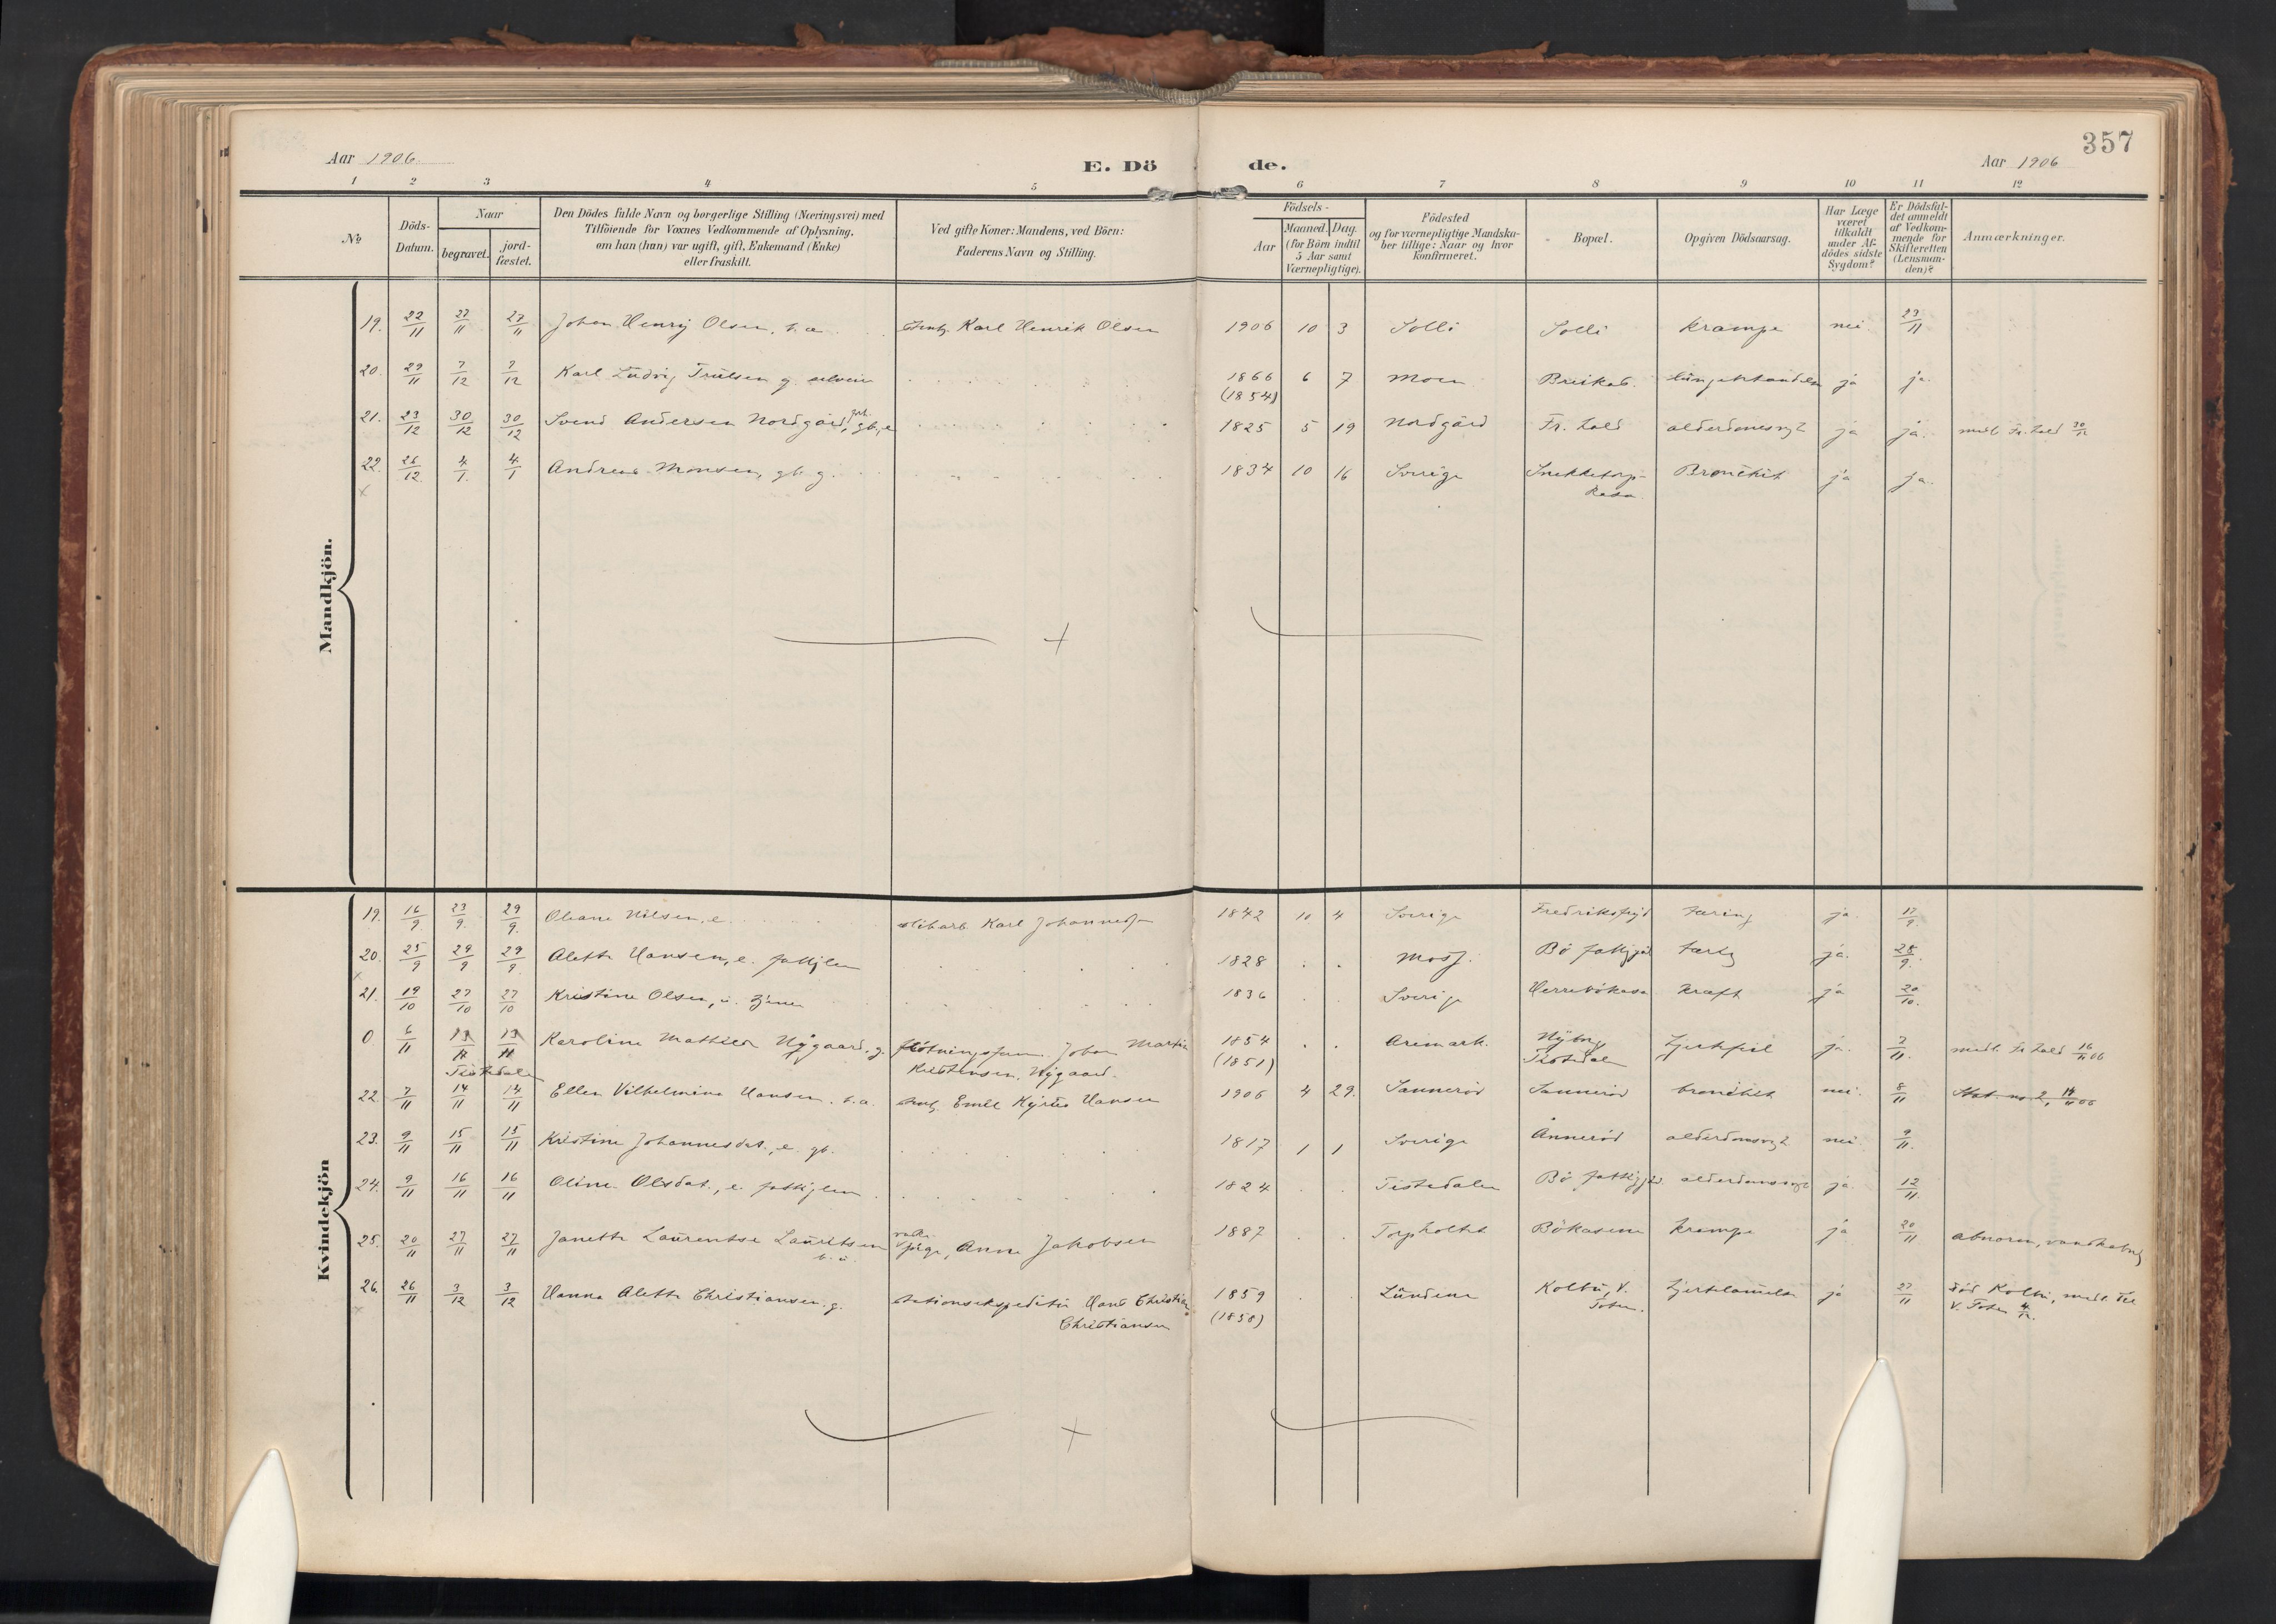 357
Aar 1906.
E. Dö de.
Aar 1906
1 2 3 4 5 6 7 8 9 10 11 12
No
Döds-Datum.
Naar
begravet.
jord-fæstet.
Den Dödes fulde Navn og borgerlige Stilling (Næringsvei) med
Tilföiende for Voxnes Vedkommende af Oplysning,
om han (hun) var ugift, gift, Enkemand (Enke)
eller fraskilt.
Ved gifte Koner: Mandens, ved Börn:
Faderens Navn og Stilling.
Födsels-
Aar
Maaned. Dag.
(for Börn indtil
5 Aar samt
Værnepligtige).
Födested
og for værnepligtige Mandska-
ber tillige: Naar og hvor
konfirmeret.
Bopæl.
Opgiven Dödsaarsag.
Har Læge
været
tilkaldt
under Af-
dödes sidste
Sygdom?
Er Dödsfal-
det anmeldt
af Vedkom-
mende for
Skifteretten
(Lensman-
den)?
Anmærkninger.
Mandkjön.
19. 22/11 27/11 27/11 Johan Henry Olsen, b. a. Karl Henrik Olsen 1906 10 3 Solli Solli krampe nei. 23/11
20. 29/11 7/12 7/12 Karl Ludvig Trulsen g. 1866 6 7 Moen ja ja.
(1854)
21. 23/12 30/12 30/12 Svend Andersen Nordgård, gb. e 1825 5 19 Nordgård Fr. hald alderdomssvgh ja ja. medt. Fr. hald 30/12
22. 26/12 4/1 4/1 Andreas Monsen, gb. g. 1834 10 16 Sverige Snekketorp- Bronchit ja ja.
kasa
Kvindekjön
19. 16/9. 23/9. 29/9. Oleane Nilsen, e. Karl Johannes 1842 10 4 Sverige tæring ja. 17/9.
20. 25/9 29/9 29/9 Alette Hansen, e. fattiglem 1828 Moss. Bö fattiggård ja. 25/9.
21. 19/10 27/10 27/10 Kristine Olsen, u. 1836 Sverige Herrebøkasa kræft ja 20/10.
0 6/11 13/11 13/11 Karoline Mathilda Nygaard, g. fløtningsform. Johan Martin 1854 Aremark. Nyborg ja. 7/11. medt. Fr. hald 16/11 06
Tistedalen Kristensen Nygaard. (1851) Tistedalen
22. 7/11 14/11 14/11 Ellen Vilhelmine Hansen. b. a. Emil Kyrus Hansen 1906 4 29. Sannerød Sannerød bronchit nei. 8/11
23. 9/11 15/11 15/11 Kristine Johannesdat., e. gb. 1817 1 1 Sverige Annerød alderdomssvgh nei. 9/11.
24. 9/11 16/11 16/11 Oline Olsdat., e. fattiglem 1824 Tistedalen Bö fattiggård. alderdomssvgh ja. 12/11.
25. 20/11 27/11 27/11 Janette Laurentse Lauritsen pige, Anne Jakobsen 1887 Torpholtet Bökasene krampe ja 20/11 abnorm,
26. 26/11 3/12 3/12 Hanna Alette Christiansen. g. stationsekspeditör Hans Christian 1859 Lundene Kolbu, V. hjertelammelse ja 27/11 död Kolbu, medt. til
Christiansen (1858) Toten. V. Toten 4/12.